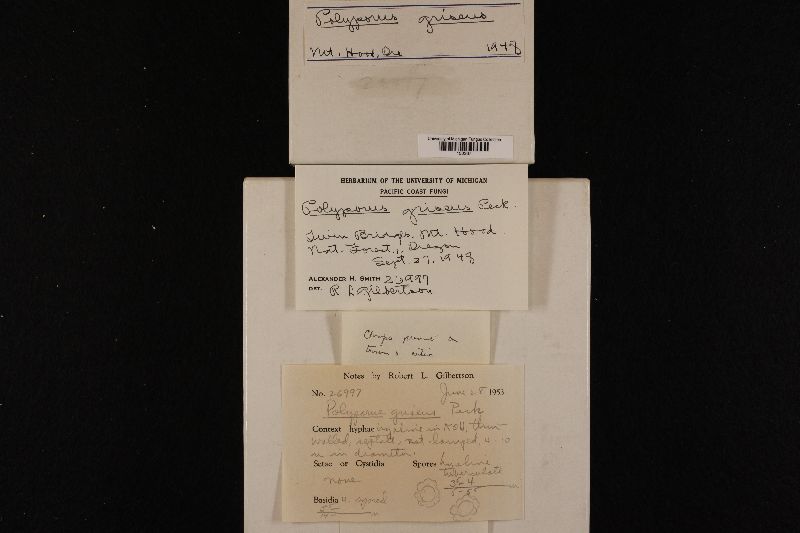 Polyporus griseus
Mt. Hood, Ore 1948
University of Michigan Fungus Collection
HERBARIUM OF THE UNIVERSITY OF MICHIGAN
PACIFIC COAST FUNGI
Polyporus griseus Peck.
Twin Bridges. Mt. Hood
Nat. Forest, Oregon
Sept. 27, 1948
ALEXANDER H. SMITH
DET. R L Gilbertson
Notes by Robert L. Gilbertson
No. 26997 June 28 1953
Polyporus griseus Peck
Context hyphae hyaline in KOH, thin
walled, septate, not clamped, 4-10
u in diameter.
Setae or Cystidia Spores hyaline
tuberculate
none
Basidia 4 spored